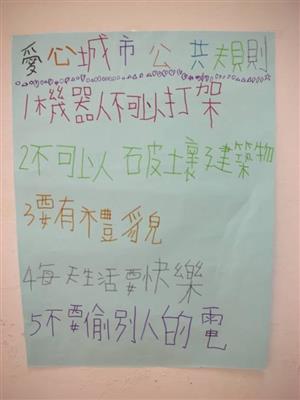 愛心城市公共規則
1機器人不可以打架
2不可以破壞建築物
3要有禮貌
4每天生活要快樂
5不要偷別人的電